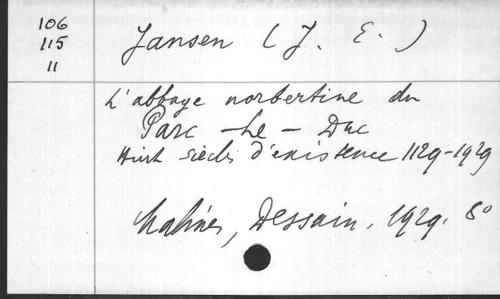 106
115
11
Jansen (J. E.)
L'abbaye norbertine du
Parc-Le-Duc
Huit siècles d'existence 1129-1929
Malines, Dessain, 1929. 8°